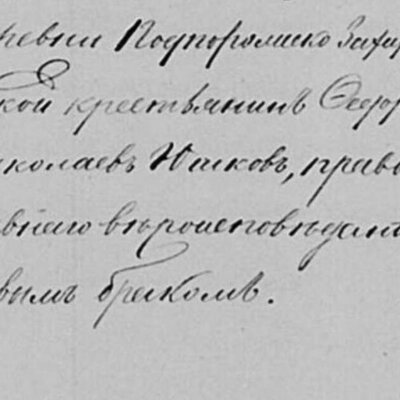 ревни Подпоромско Захар
кой крестьянинъ Ѳедор
иколаевъ Юшковъ, право
внаго вѣроисповѣдані
вымъ бракомъ.